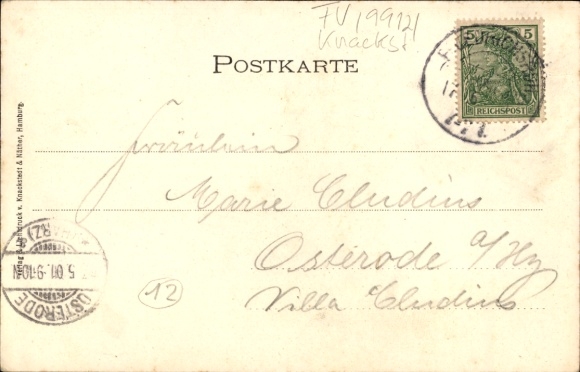 FV
Knackst.
POSTKARTE
5 5
REICHSPOST
Fräulein
Marie Cludius
Osterode a/Hz
Villa Cludius
12
Verlag & Lichtdruck v. Knackstedt & Näther, Hamburg.
OSTERODE
(HARZ)
5 01. 9-10N